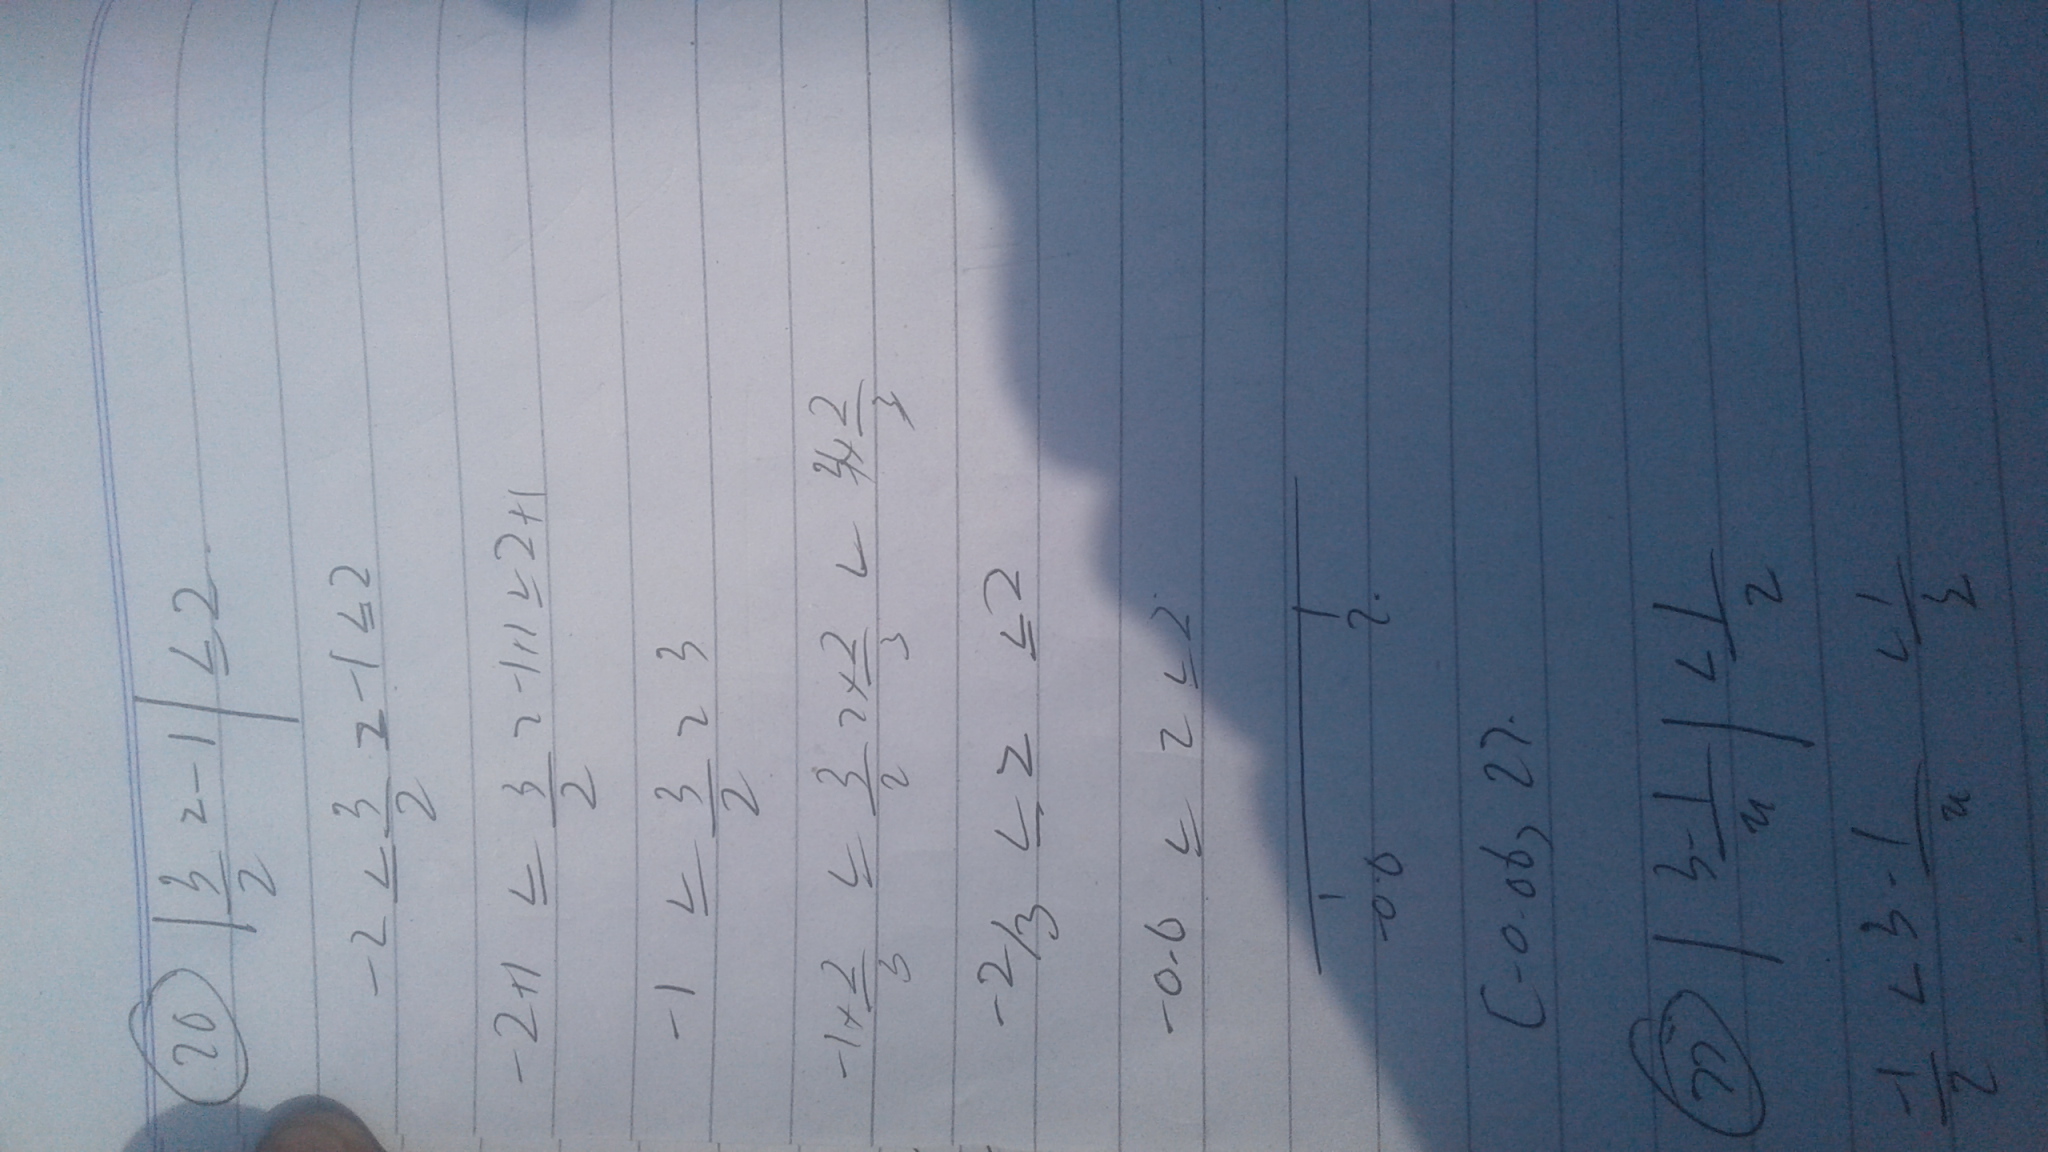 20 |3/2 z-1| ≤ 2.
-2 ≤ 3/2 z -1 ≤ 2
-2+1 ≤ 3/2 z -1+1 ≤ 2+1
-1 ≤ 3/2 z 3
-1×2/3 ≤ 3/2 z×2/3 < 3×2/3
-2/3 ≤ z ≤ 2
-0.6 ≤ z ≤ 2
-0.6 2.
[-0.06, 2].
|3-1/x| < 1/2
-1/2 < 3-1/x < 1/2